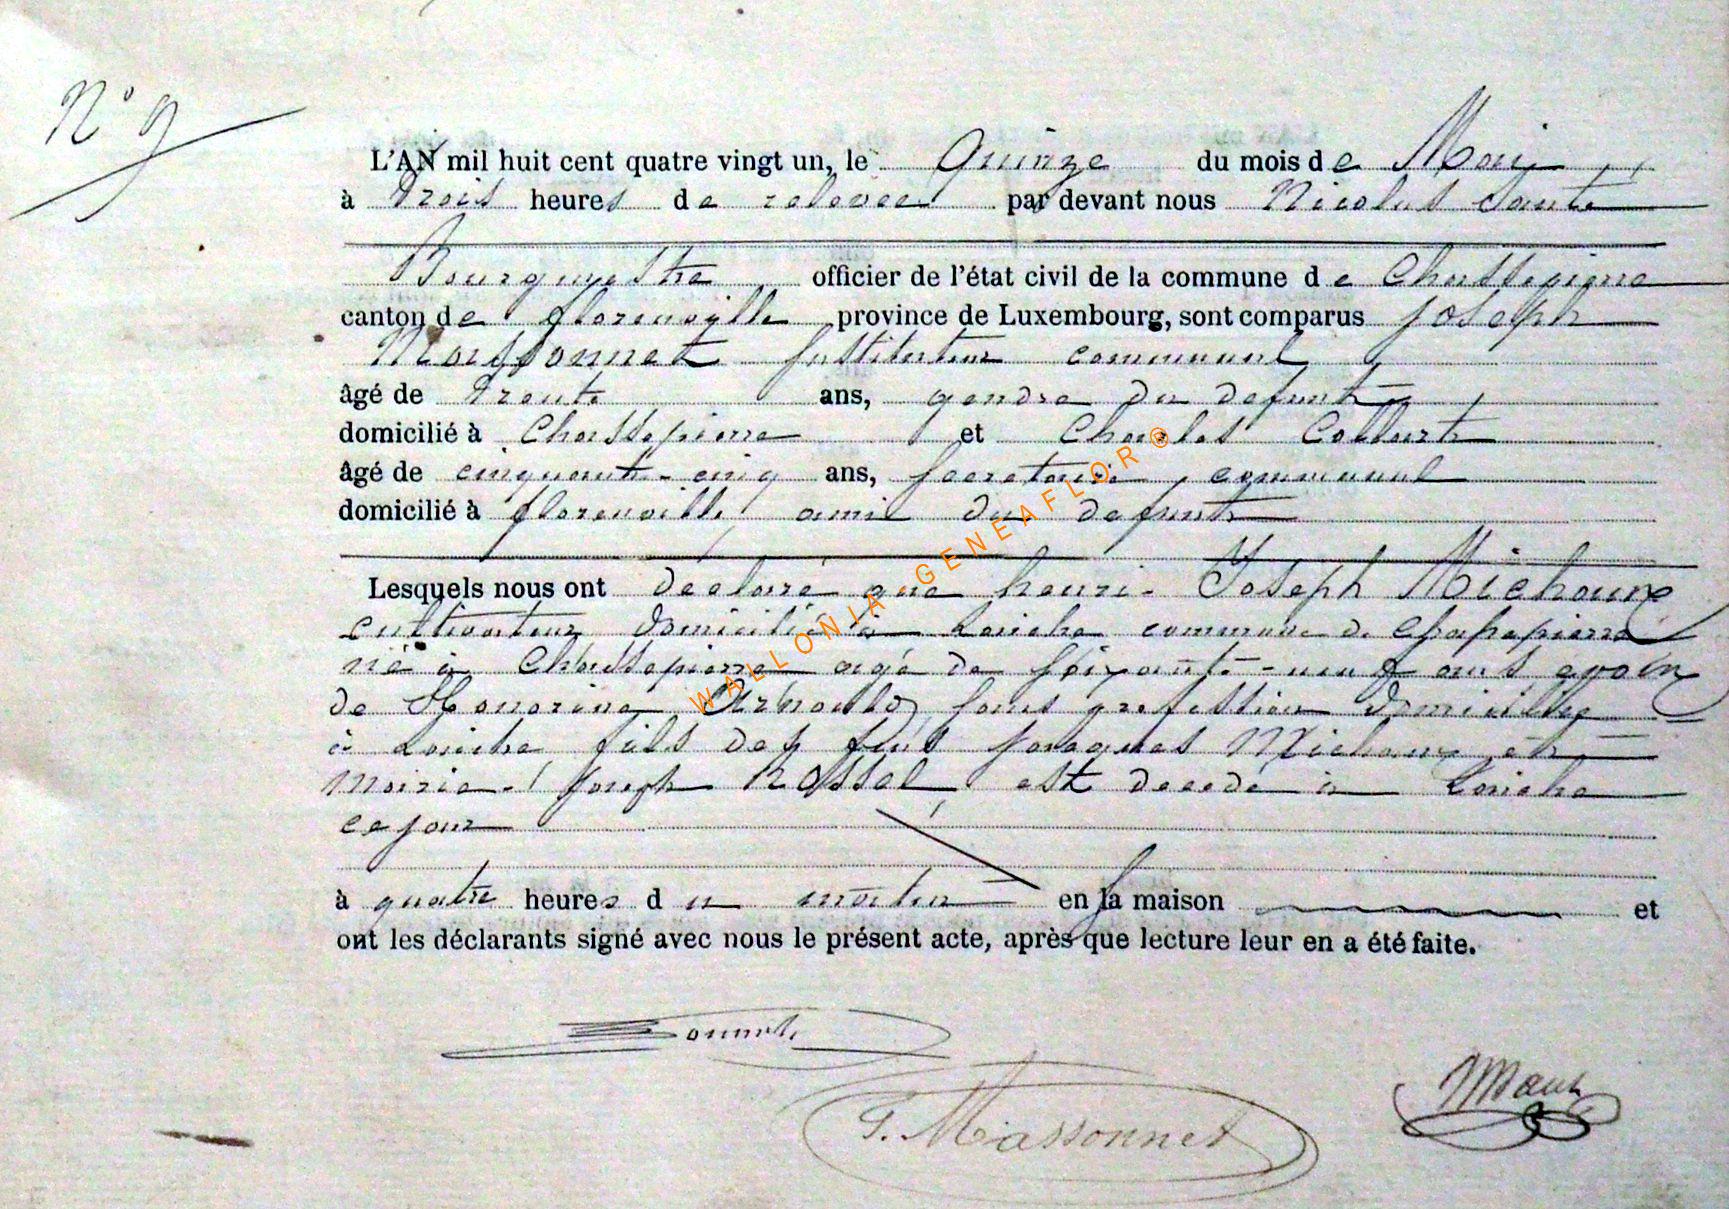 N° 9
L'AN mil huit cent quatre vingt un, le quinze du mois de Mai
à trois heures de relevée par devant nous Nicolas
Bourgmestre officier de l'état civil de la commune de Chassepierre
canton de florenville province de Luxembourg, sont comparus joseph
Massonnet Instituteur communal
âgé de trente ans, gendre du defunt
domicilié à Chassepierre et Charles Collart
âgé de cinquante-cinq ans, secretaire communal
domicilié à florenville ami du defunt
Lesquels nous ont declaré que henri-Joseph Michaux
cultivateur domicilié à Laiche commune de Chassepierre
né à Chassepierre agé de soixante-neuf ans epoux
de Honorine Arnould, sans profession domiciliée
à Laiche fils des feus jacques Michaux et
Marie-joseph Rossel est decedé à Laiche
ce jour
à quatre heures du matin en sa maison et
ont les déclarants signé avec nous le présent acte, après que lecture leur en a été faite.
J. Massonnet
WALLONIA GENEAFLOR ©